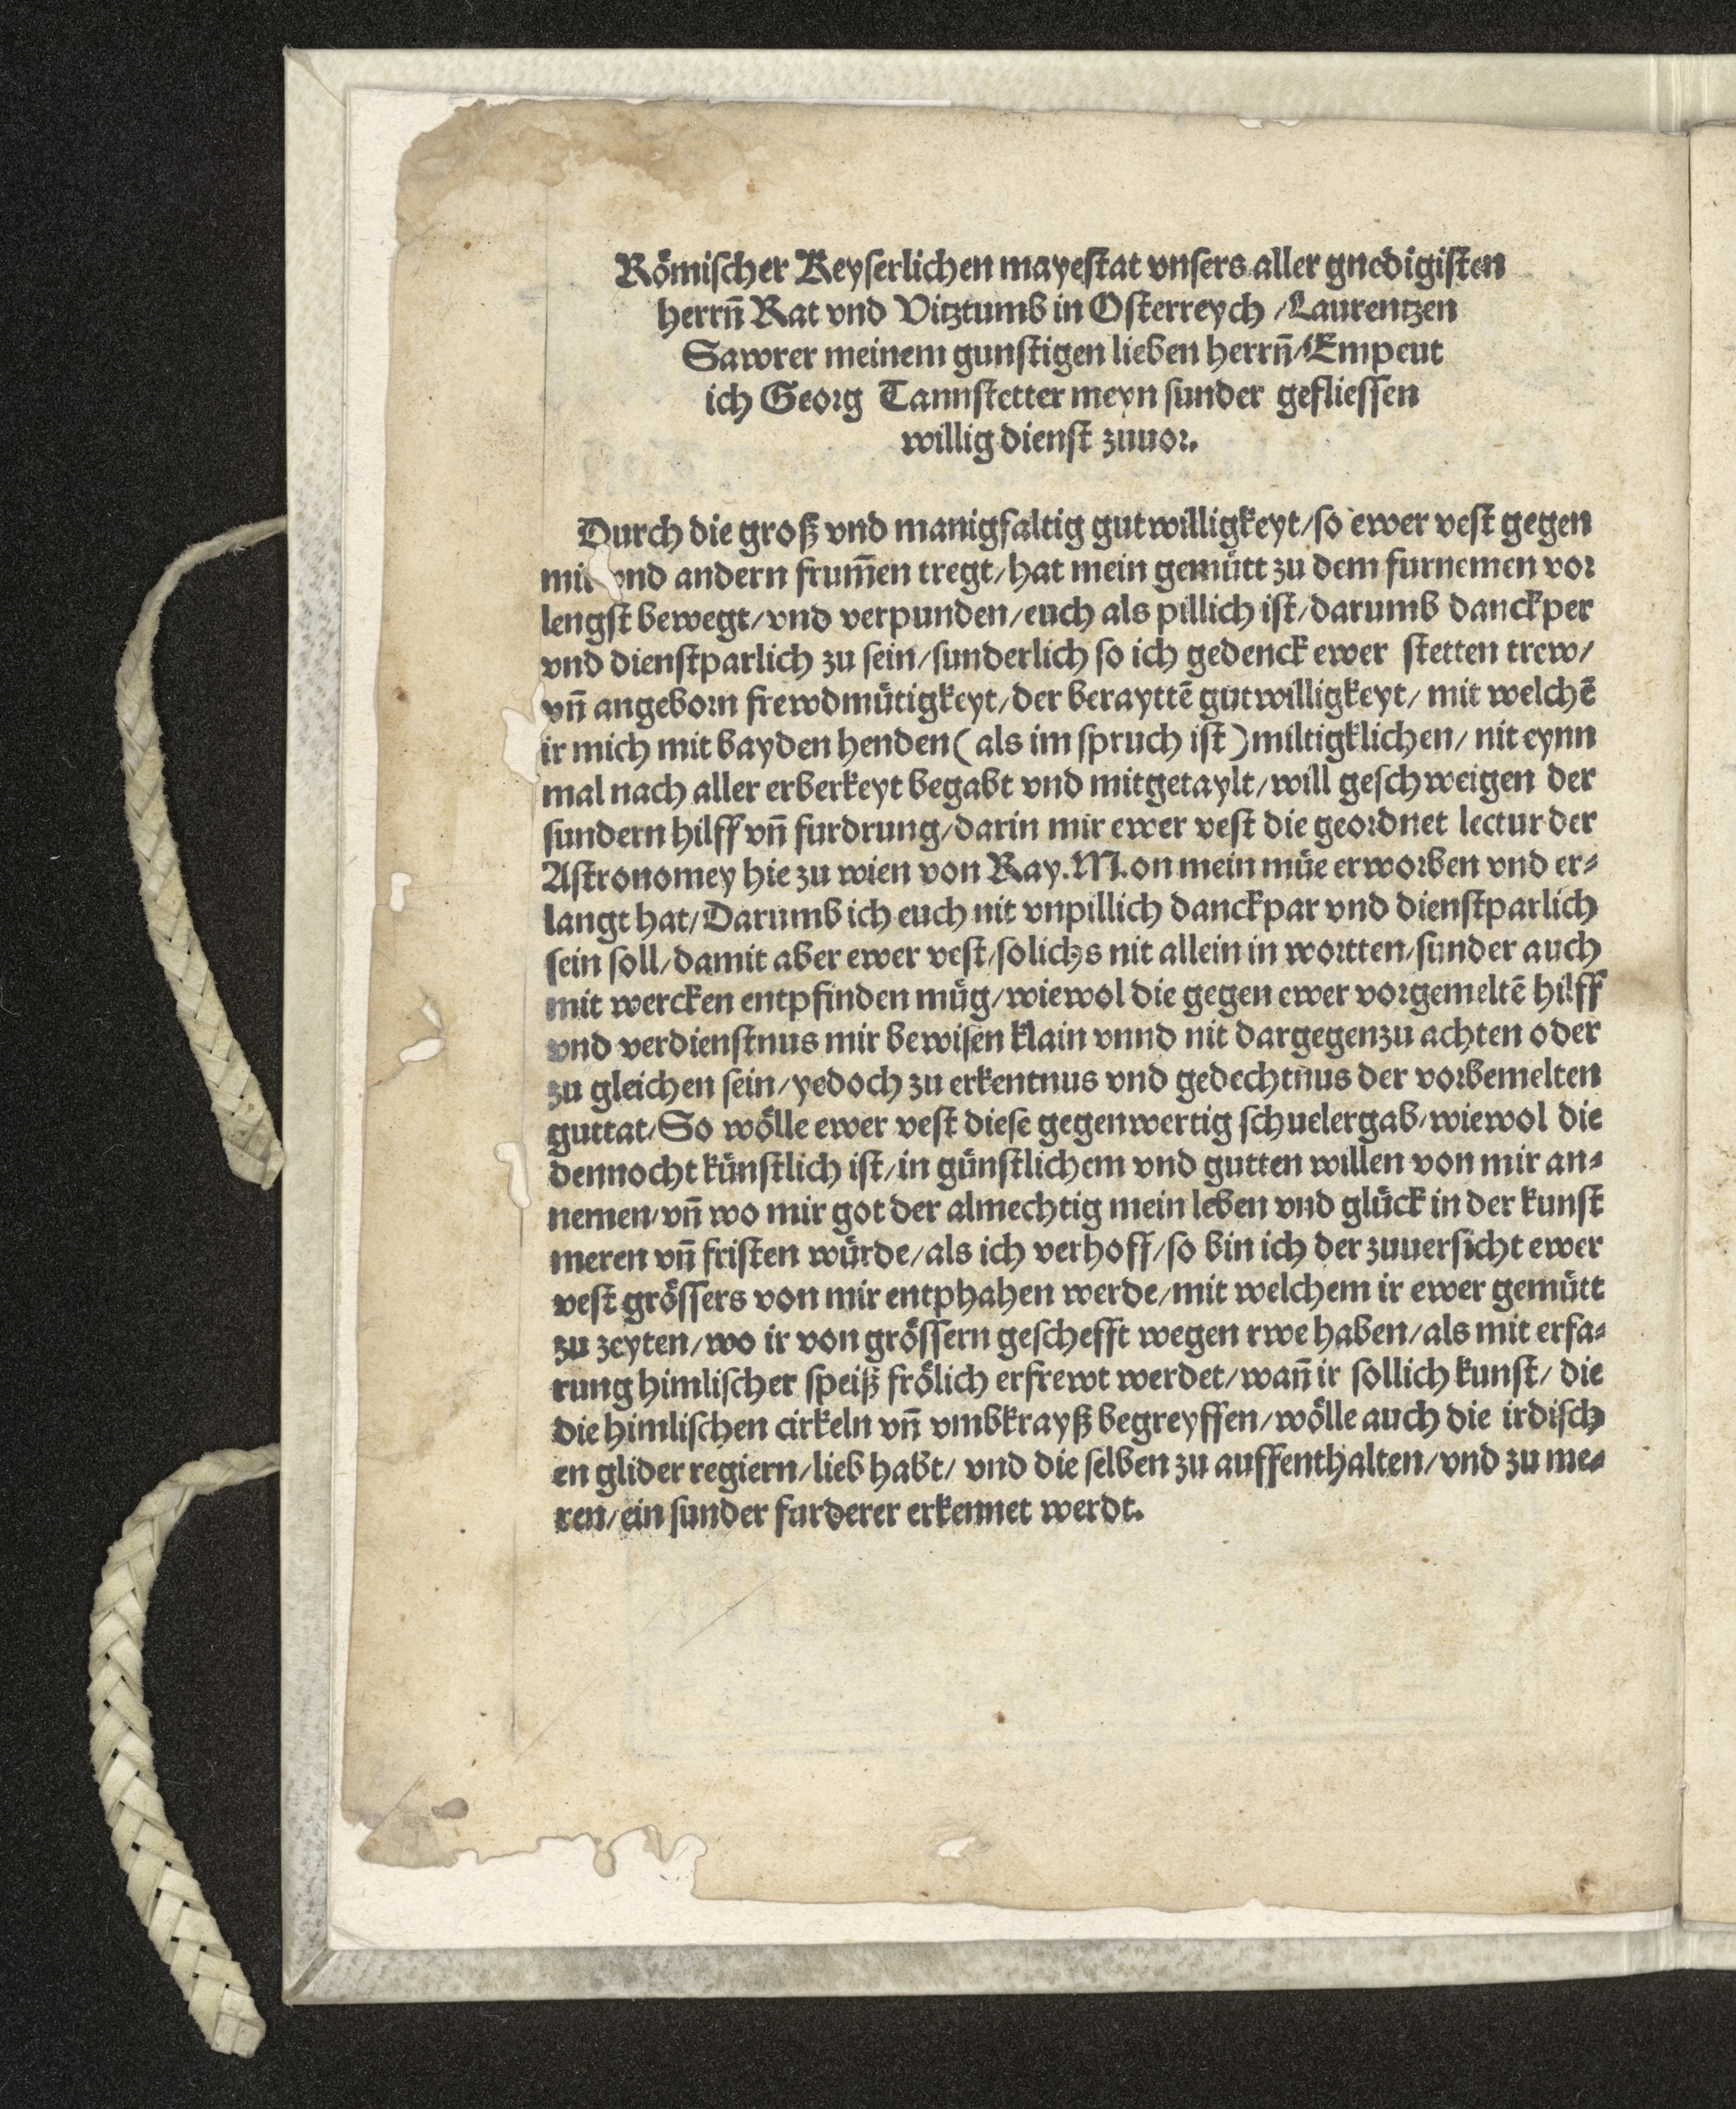 Römischer Keyserlichen mayestat vnsers aller gnedigisten
herrn̄ Rat vnd Vitztumb in Osterreych /Laurentzen
Sawrer meinem gunstigen lieben herrn̄/Empeut
ich Georg Tannstetter meyn sunder gefliessen
willig dienst zuuor.
Durch die groß vnd manigfaltig gutwilligkeyt/so ewer vest gegen
mir vnd andern frum̄en tregt/hat mein gemütt zu dem furnemen vor
lengst bewegt/vnd verpunden/euch als pillich ist/darumb danckper
vnd dienstparlich zu sein/sunderlich so ich gedenck ewer stetten trew/
vn̄ angeborn frewdmütigkeyt/der berayttē gutwilligkeyt/ mit welchē
ir mich mit bayden henden ( als im spruch ist ) miltigklichen/ nit eynn
mal nach aller erberkeyt begabt vnd mitgetaylt/will geschweigen der
sundern hilff vn̄ furdrung/darin mir ewer vest die geordnet lectur der
Astronomey hie zu wien von Kay.M.on mein müe erworben vnd er⸗
langt hat/Darumb ich euch nit vnpillich danckpar vnd dienstparlich
sein soll/damit aber ewer vest/solichs nit allein in wortten/sunder auch
mit wercken entpfinden müg/wiewol die gegen ewer vorgemeltē hilff
vnd verdienstnus mir bewisen klain vnnd nit dargegenzu achten oder
zu gleichen sein/yedoch zu erkentnus vnd gedechtnus der vorbemelten
guttat/So wölle ewer vest diese gegenwertig schuelergab/wiewol die
dennocht künstlich ist/in günstlichem vnd gutten willen von mir an⸗
nemen/vn̄ wo mir got der almechtig mein leben vnd glück in der kunst
meren vn̄ fristen würde/als ich verhoff/so bin ich der zuuersicht ewer
vest grössers von mir entphahen werde/mit welchem ir ewer gemütt
zu zeyten/wo ir von grössern geschefft wegen rwe haben/als mit erfa⸗
rung himlischer speiß frölich erfrewt werdet/wan̄ ir sollich kunst/ die
die himlischen cirkeln vn̄ vmbkrayß begreyffen/wölle auch die irdisch
en glider regiern/lieb habt/ vnd die selben zu auffenthalten/vnd zu me⸗
ren/ein sunder furderer erkennet werdt.